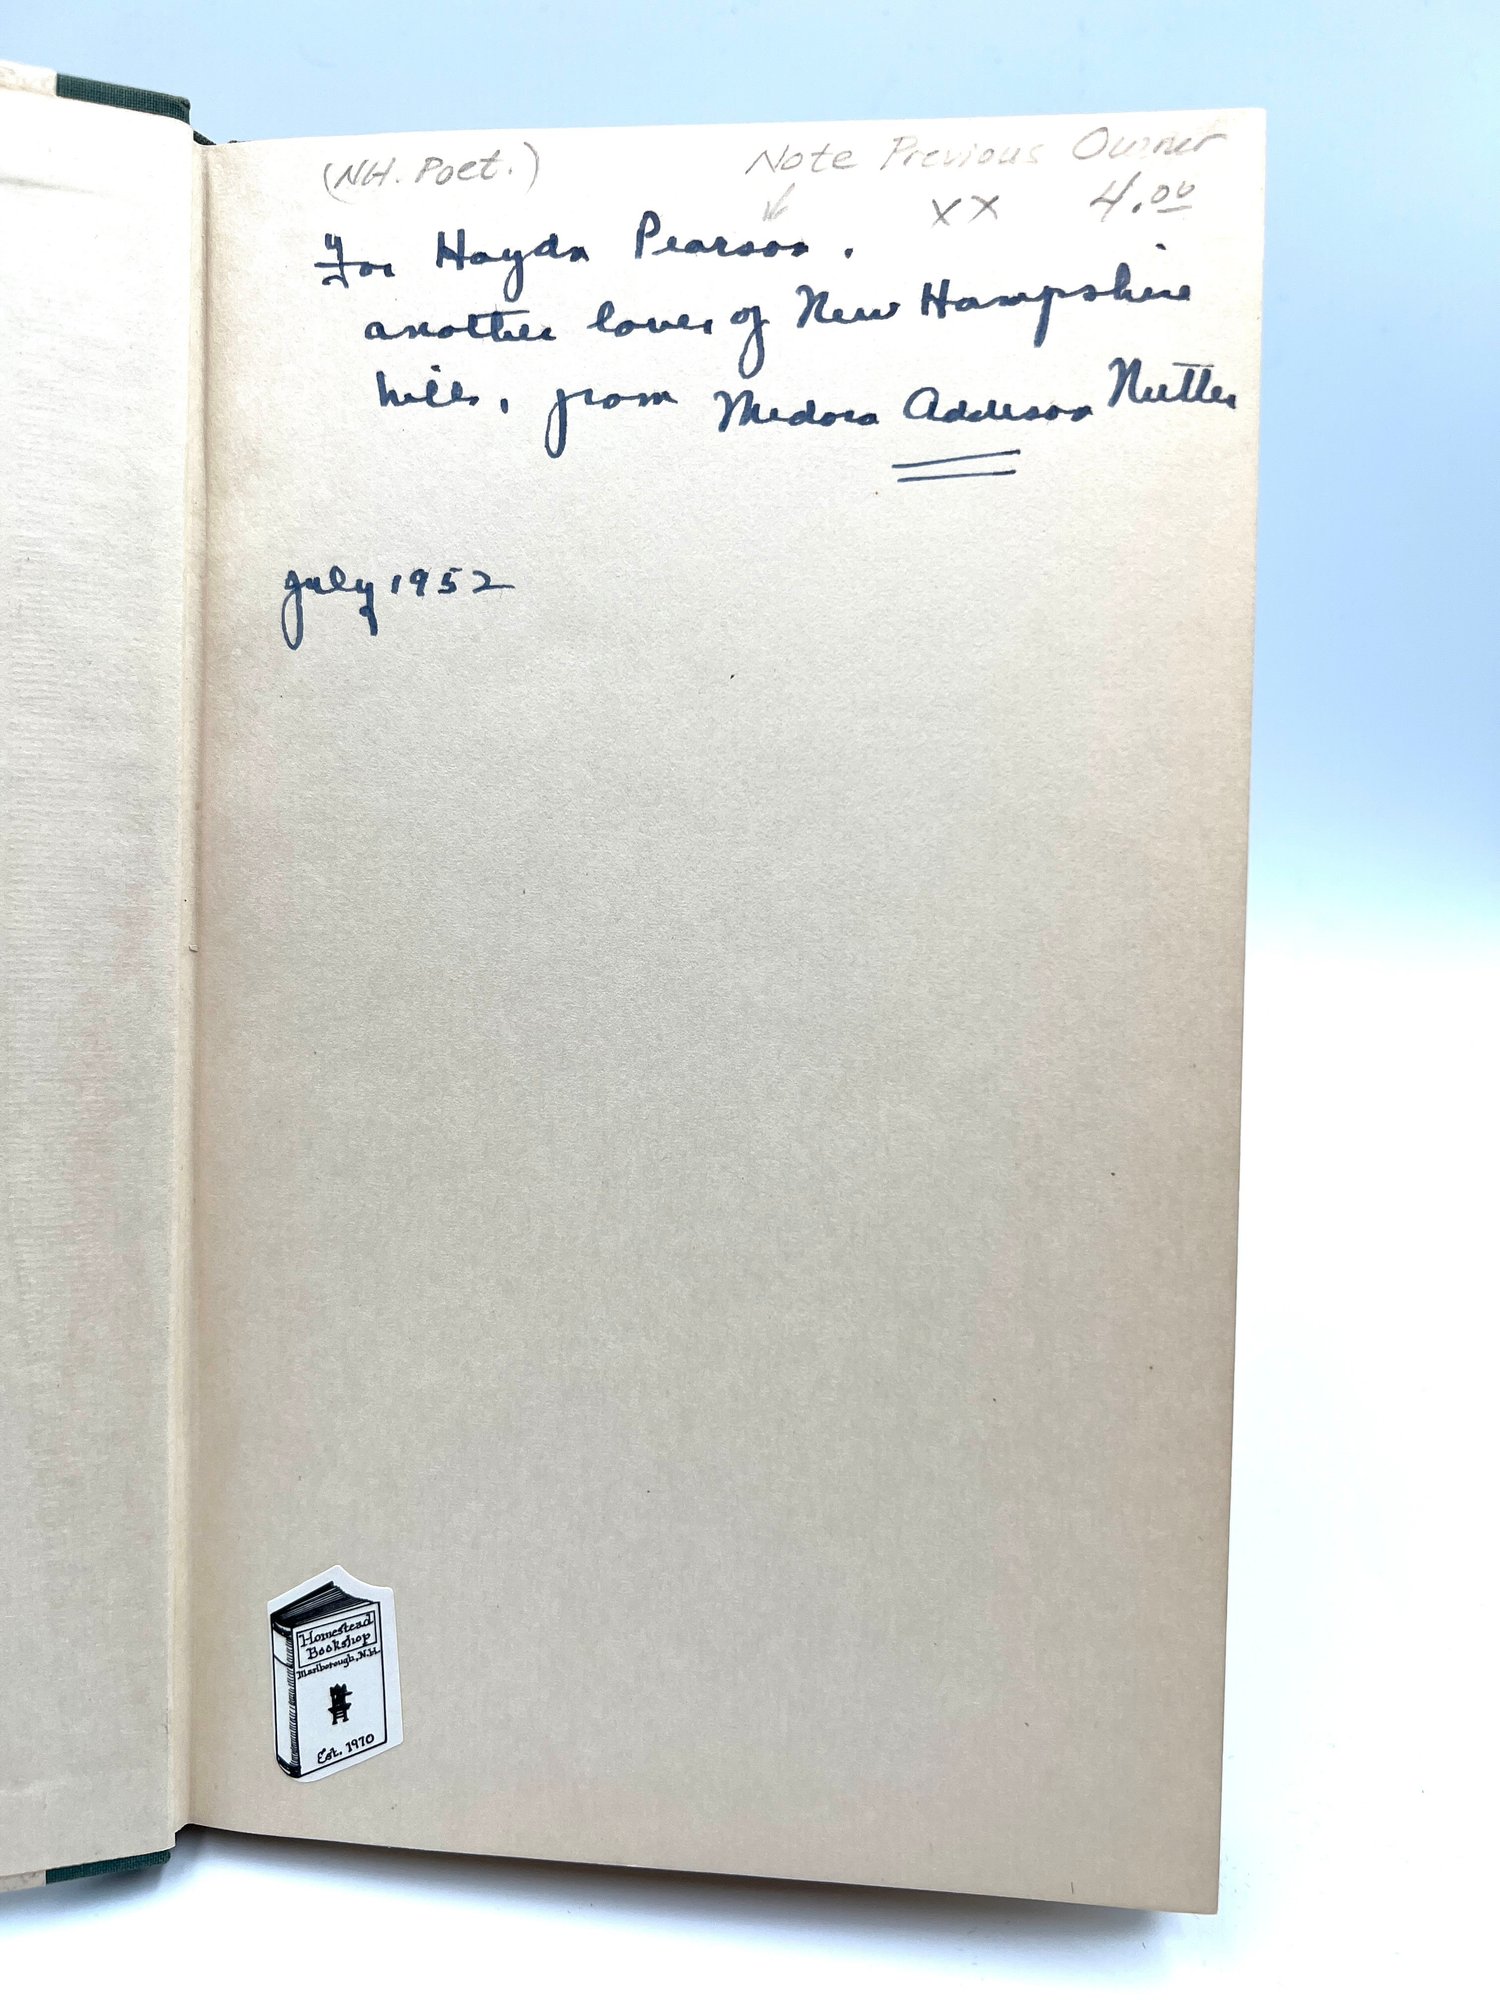 (NH. Poet.) Note Previous Owner
xx 4.00
For Haydn Pearson.
another lover of New Hampshire
hills, from Medora Addison Nutter
July 1952
Homestead
Bookshop
Marlborough, N.H.
Est. 1970